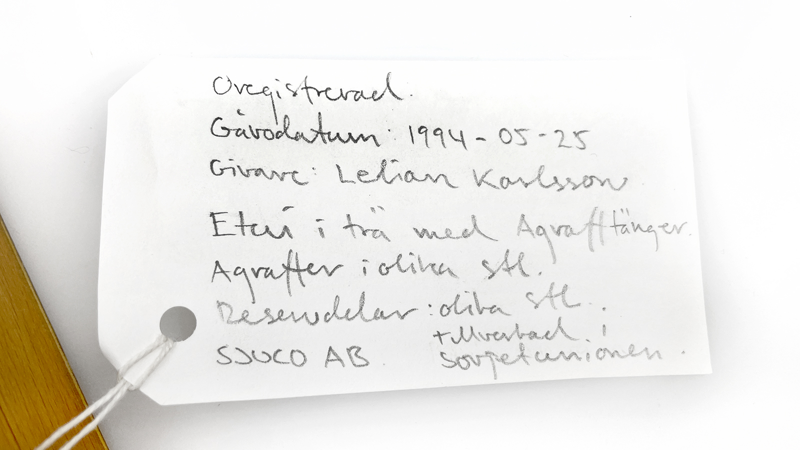 Oregistrerad.
Gåvodatum: 1994-05-25
Givare: Lelian Karlsson
Etui i trä med Agrafftänger.
Agraffer i olika stl.
Reservdelar: olika stl.
SJUCO AB tillverkad i
Sovjetunionen.